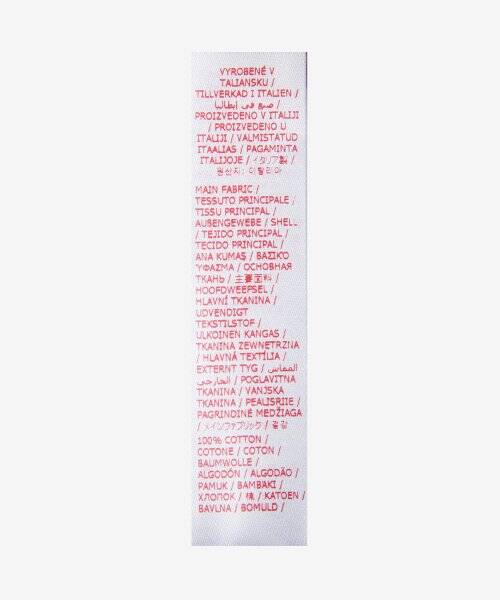 VYROBENÉ V
TALIANSKU /
TILLVERKAD I ITALIEN /
/ صنع في إيطاليا
PROIZVEDENO V ITALIJI
/ PROIZVEDENO U
ITALIJI / VALMISTATUD
ITAALIAS / PAGAMINTA
ITALIJOJE / イタリア製 /
원산지: 이탈리아
MAIN FABRIC /
TESSUTO PRINCIPALE /
TISSU PRINCIPAL /
AUßENGEWEBE / SHELL
/ TEJIDO PRINCIPAL /
TECIDO PRINCIPAL /
ANA KUMAŞ / ΒΑΣΙΚΌ
ΎΦΑΣΜΑ / ОСНОВНАЯ
ТКАНЬ / 主要面料 /
HOOFDWEEFSEL /
HLAVNÍ TKANINA /
UDVENDIGT
TEKSTILSTOF /
ULKOINEN KANGAS /
TKANINA ZEWNĘTRZNA
/ HLAVNÁ TEXTÍLIA /
EXTERNT TYG / القماش
الخارجي / POGLAVITNA
TKANINA / VANJSKA
TKANINA / PEALISRIIE /
PAGRINDINĖ MEDŽIAGA
/ メインファブリック / 겉감
100% COTTON /
COTONE / COTON /
BAUMWOLLE /
ALGODÓN / ALGODÃO /
PAMUK / ΒΑΜΒΑΚΙ /
ХЛОПОК / 棉 / KATOEN /
BAVLNA / BOMULD /